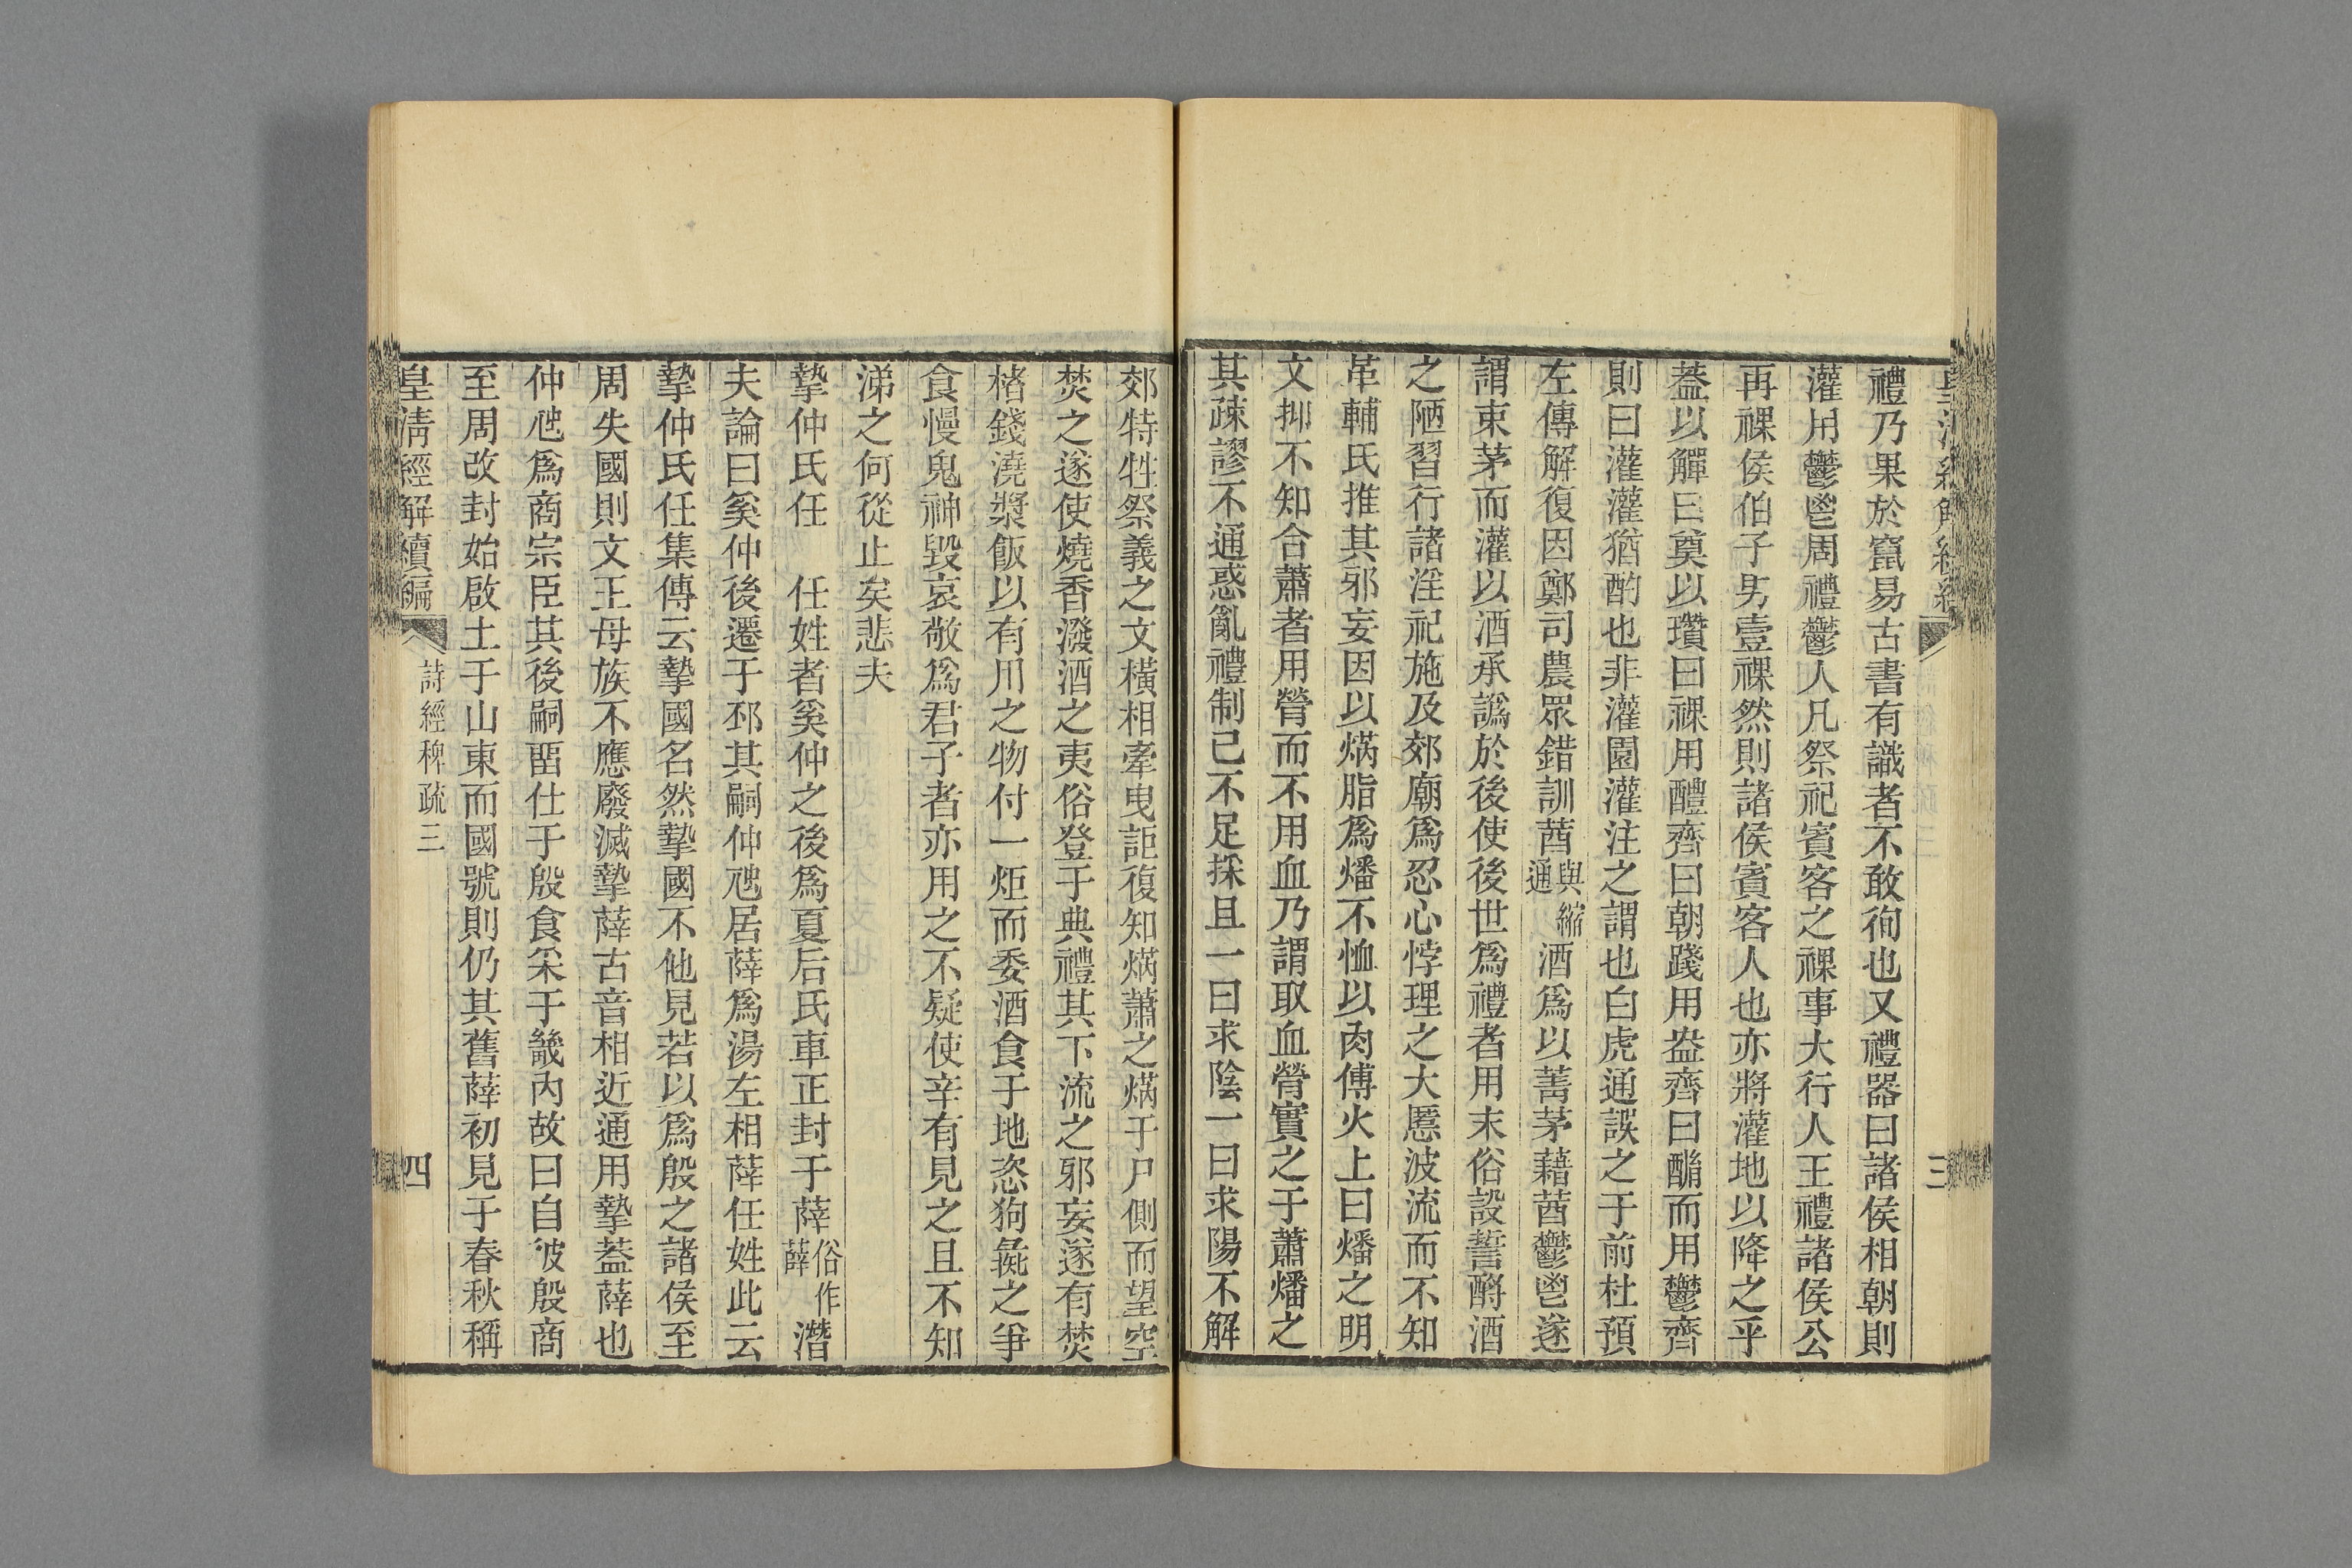 禮乃果於竄易古書有識者不敢徇也又禮器曰諸侯相朝則
灌用鬱鬯周禮鬱人凡祭祀賓客之祼事大行人王禮諸侯公
再祼侯伯子男壹祼然則諸侯賓客人也亦將灌地以降之乎
蓋以觶曰奠以瓚曰祼用醴齊曰朝踐用盎齊曰酳而用鬱齊
則曰灌灌猶酌也非灌園灌注之謂也白虎通誤之于前杜預
左傳解復因鄭司農眾錯訓莤與縮通酒爲以菁茅藉莤鬱鬯遂
謂束茅而灌以酒承譌於後使後世爲禮者用末俗設誓酹酒
之陋習行諸淫祀施及郊廟爲忍心悖理之大慝波流而不知
革輔氏推其邪妄因以焫脂爲燔不恤以肉傅火上曰燔之明
文抑不知合蕭者用膋而不用血乃謂取血膋實之于蕭燔之
其疎謬不通惑亂禮制已不足採且一曰求陰一曰求陽不解
郊特牲祭義之文橫相牽曳詎復知焫蕭之焫于尸側而望空
焚之遂使燒香潑酒之夷俗登于典禮其下流之邪妄遂有焚
楮錢澆漿飯以有用之物付一炬而委酒食于地恣狗彘之爭
食慢鬼神毀哀敬爲君子者亦用之不疑使辛有見之且不知
涕之何從止矣悲夫
摯仲氏任　任姓者奚仲之後爲夏后氏車正封于薛俗作薛潛
夫論曰奚仲後遷于邳其嗣仲虺居薛爲湯左相薛任姓此云
摯仲氏任集傳云摯國名然摯國不他見若以爲殷之諸侯至
周失國則文王母族不應廢滅摯薛古音相近通用摯蓋薛也
仲虺爲商宗臣其後嗣畱仕于殷食采于畿內故曰自彼殷商
至周改封始啟土于山東而國號則仍其舊薛初見于春秋稱
皇淸經解續編
詩經稗疏三
四
三